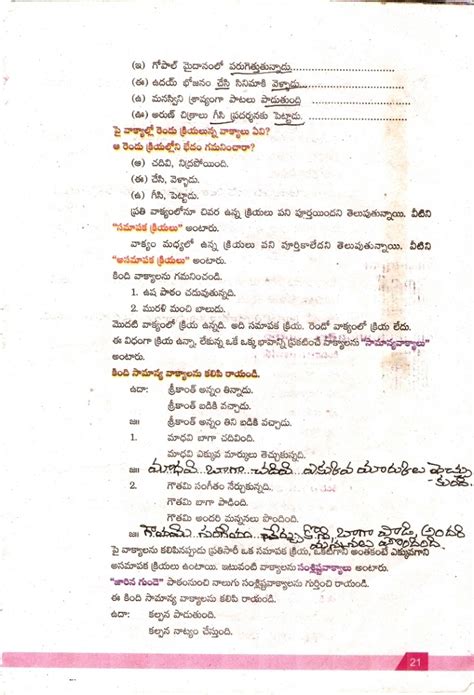 (ఇ) గోపాల్ మైదానంలో పరుగెత్తుతున్నాడు.
(ఈ) ఉదయ్ భోజనం చేసి సినిమాకి వెళ్ళాడు.
(ఉ) మనస్విని శ్రావ్యంగా పాటలు పాడుతుంది
(ఊ) అరుణ్ చిత్రాలు గీసి ప్రదర్శనకు పెట్టాడు.
పై వాక్యాల్లో రెండు క్రియలున్న వాక్యాలు ఏవి?
ఆ రెండు క్రియల్లోని భేదం గమనించారా?
(అ) చదివి, నిద్రపోయింది.
(ఈ) చేసి, వెళ్ళాడు.
(ఉ) గీసి, పెట్టాడు.
ప్రతి వాక్యంలోనూ చివర ఉన్న క్రియలు పని పూర్తయిందని తెలుపుతున్నాయి. వీటిని
"సమాపక క్రియలు" అంటారు.
వాక్యం మధ్యలో ఉన్న క్రియలు పని పూర్తికాలేదని తెలుపుతున్నాయి. వీటిని
"అసమాపక క్రియలు" అంటారు.
కింది వాక్యాలను గమనించండి.
1. ఉష పాఠం చదువుతున్నది.
2. మురళి మంచి బాలుడు.
మొదటి వాక్యంలో క్రియ ఉన్నది. అది సమాపక క్రియ. రెండో వాక్యంలో క్రియ లేదు.
ఈ విధంగా క్రియ ఉన్నా, లేకున్న ఒకే ఒక్క భావాన్ని ప్రకటించే వాక్యాలను "సామాన్యవాక్యాలు"
అంటారు.
కింది సామాన్య వాక్యాలను కలిపి రాయండి.
ఉదా: శ్రీకాంత్ అన్నం తిన్నాడు.
శ్రీకాంత్ బడికి వచ్చాడు.
జః॥ శ్రీకాంత్ అన్నం తిని బడికి వచ్చాడు.
1. మాధవి బాగా చదివింది.
మాధవి ఎక్కువ మార్కులు తెచ్చుకున్నది.
జః॥ మాధవి బాగా చదివి ఎక్కువ మార్కులు తెచ్చు
కుంది
2. గౌతమి సంగీతం నేర్చుకున్నది.
గౌతమి బాగా పాడింది.
గౌతమి అందరి మన్ననలు పొందింది.
జః॥ గౌతమి సంగీతం నేర్చుకొని బాగా పాడి, అందరి
మన్ననలు పొందింది.
పై వాక్యాలను కలిపినప్పుడు ప్రతిసారీ ఒక సమాపక క్రియ, ఒకటిగాని అంతకంటే ఎక్కువగాని
అసమాపక క్రియలు ఉంటాయి. ఇటువంటి వాక్యాలను సంశ్లిష్టవాక్యాలు అంటారు.
"జారిన గుండె" పాఠంనుంచి నాలుగు సంశ్లిష్టవాక్యాలను గుర్తించి రాయండి.
ఈ కింది సామాన్య వాక్యాలను కలిపి రాయండి.
ఉదా: కల్పన పాడుతుంది.
కల్పన నాట్యం చేస్తుంది.
21